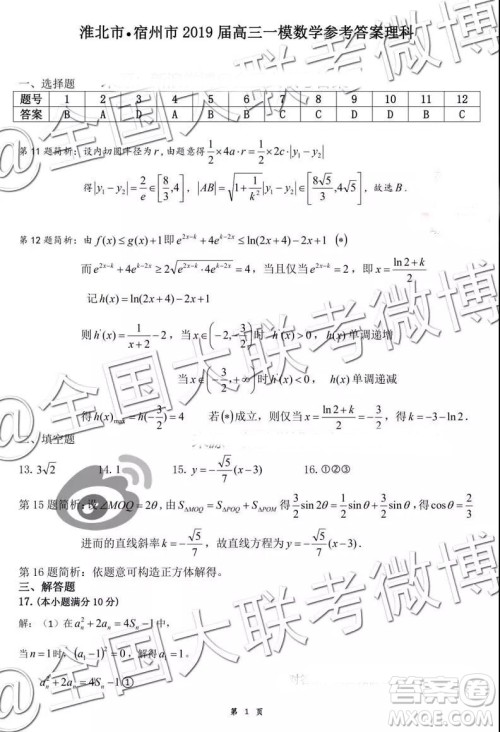 淮北市•宿州市 2019 届高三一模数学参考答案理科
一、选择题
题号 1 2 3 4 5 6 7 8 9 10 11 12
答案 B A D A B B C C D B C
第 11 题简析：设内切圆半径为 r，由题意得 1/2×4a·r=1/2×2c·|y₁-y₂|
得|y₁-y₂|=2/e∈[8/3,4]，|AB|=√(1+1/k²)|y₁-y₂|∈[8√5/3,4√5]，故选 B．
第 12 题简析：由 f(x)≤g(x)+1 即 e^(2x-k)+4e^(k-2x)≤ln(2x+4)-2x (*)
而 e^(2x-k)+4e^(k-2x)≥2√(e^(2x-k)·4e^(k-2x))=4，当且仅当 e^(2x-k)=2，即 x=(ln2+k)/2
记 h(x)=ln(2x+4)-2x
则 h'(x)=1/(x+2)-2，当 x∈(-2,-3/2)时 h'(x)>0，h(x)单调递增
当 x∈(-3/2,+∞)时 h'(x)<0，h(x)单调递减
得 h(x)max=h(-3/2)=4 若(*)成立，则仅当 x=(ln2+k)/2=-3/2，得 k=-3-ln2．
二、填空题
13. 3√2 14. 1 15. y=-√5/7(x-3) 16. ①②③
第 15 题简析：设∠MOQ=2θ，由 S△MOQ=S△POQ+S△POM 得 3/2 sin2θ=1/2 sinθ+3/4 sinθ，得 cosθ=
进而的直线斜率 k=-√5/7，直线方程为 y=-√5/7(x-3)
第 16 题简析：依题意可构造正方体解得。
三、解答题
17. (本小题满分 10 分)
解：（1）在 aₙ²+2aₙ=4Sₙ-1 中，
当 n=1 时，(a₁-1)²=0，
aₙ²+2aₙ=4Sₙ-1①
第 1 页
@全国大联考微博
@全国大联考微博
@全国大联考微博
答案圈
MXQE.COM